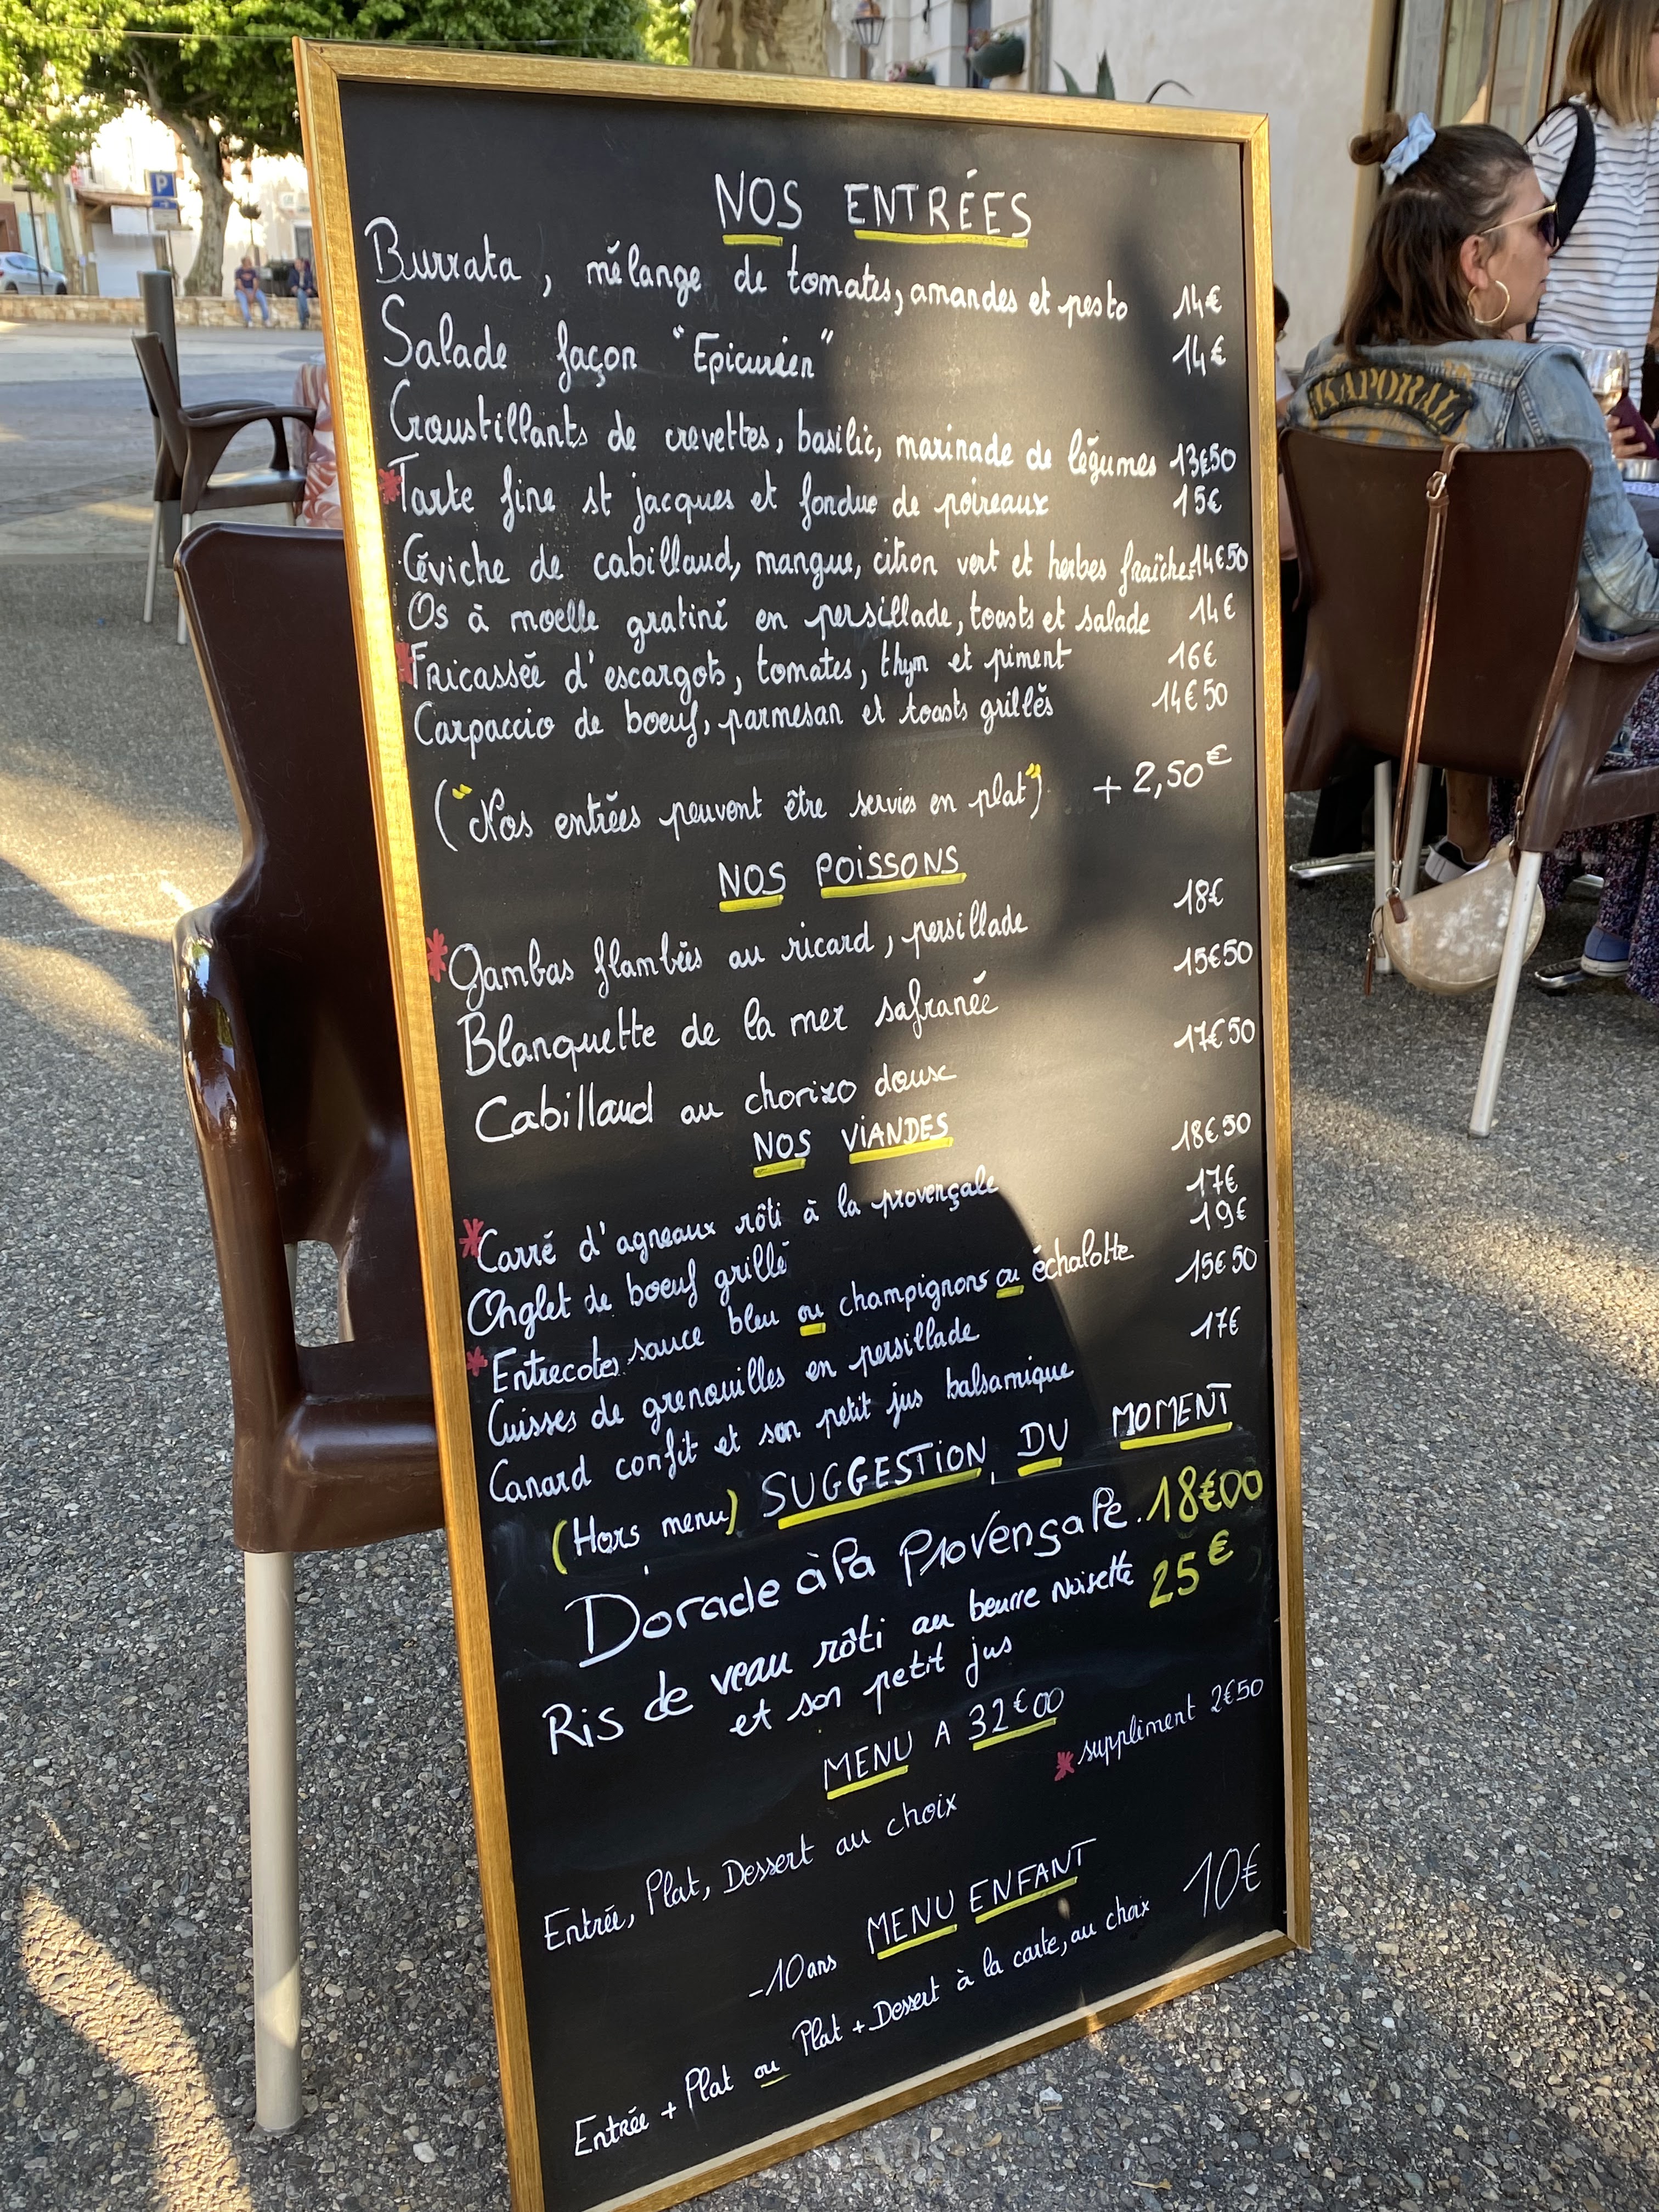 NOS ENTRÉES
Burrata, mélange de tomates, amandes et pesto 14€
Salade façon "Epicurien" 14€
Croustillants de crevettes, basilic, marinade de légumes 13€50
*Tarte fine st jacques et fondue de poireaux 15€
Céviche de cabillaud, mangue, citron vert et herbes fraîches 14€50
Os à moelle gratiné en persillade, toasts et salade 14€
*Fricassée d'escargots, tomates, thym et piment 16€
Carpaccio de boeuf, parmesan et toasts grillés 14€50
("Nos entrées peuvent être servies en plat") + 2,50€
NOS POISSONS
*Gambas flambées au ricard, persillade 18€
Blanquette de la mer safranée 15€50
Cabillaud au chorizo doux 17€50
NOS VIANDES
*Carré d'agneaux rôti à la provençale 18€50
Onglet de boeuf grillé 17€
*Entrecotes sauce bleu ou champignons ou échalotte 19€
Cuisses de grenouilles en persillade 15€50
Canard confit et son petit jus balsamique 17€
(Hors menu) SUGGESTION DU MOMENT
Dorade à la Provençale. 18€00
Ris de veau rôti au beurre Noisette 25€
et son petit jus
MENU A 32€00
*suppliment 2€50
Entrée, Plat, Dessert au choix
-10ans MENU ENFANT 10€
Entrée + Plat ou Plat + Dessert à la carte, au choix
KAPORAL
P